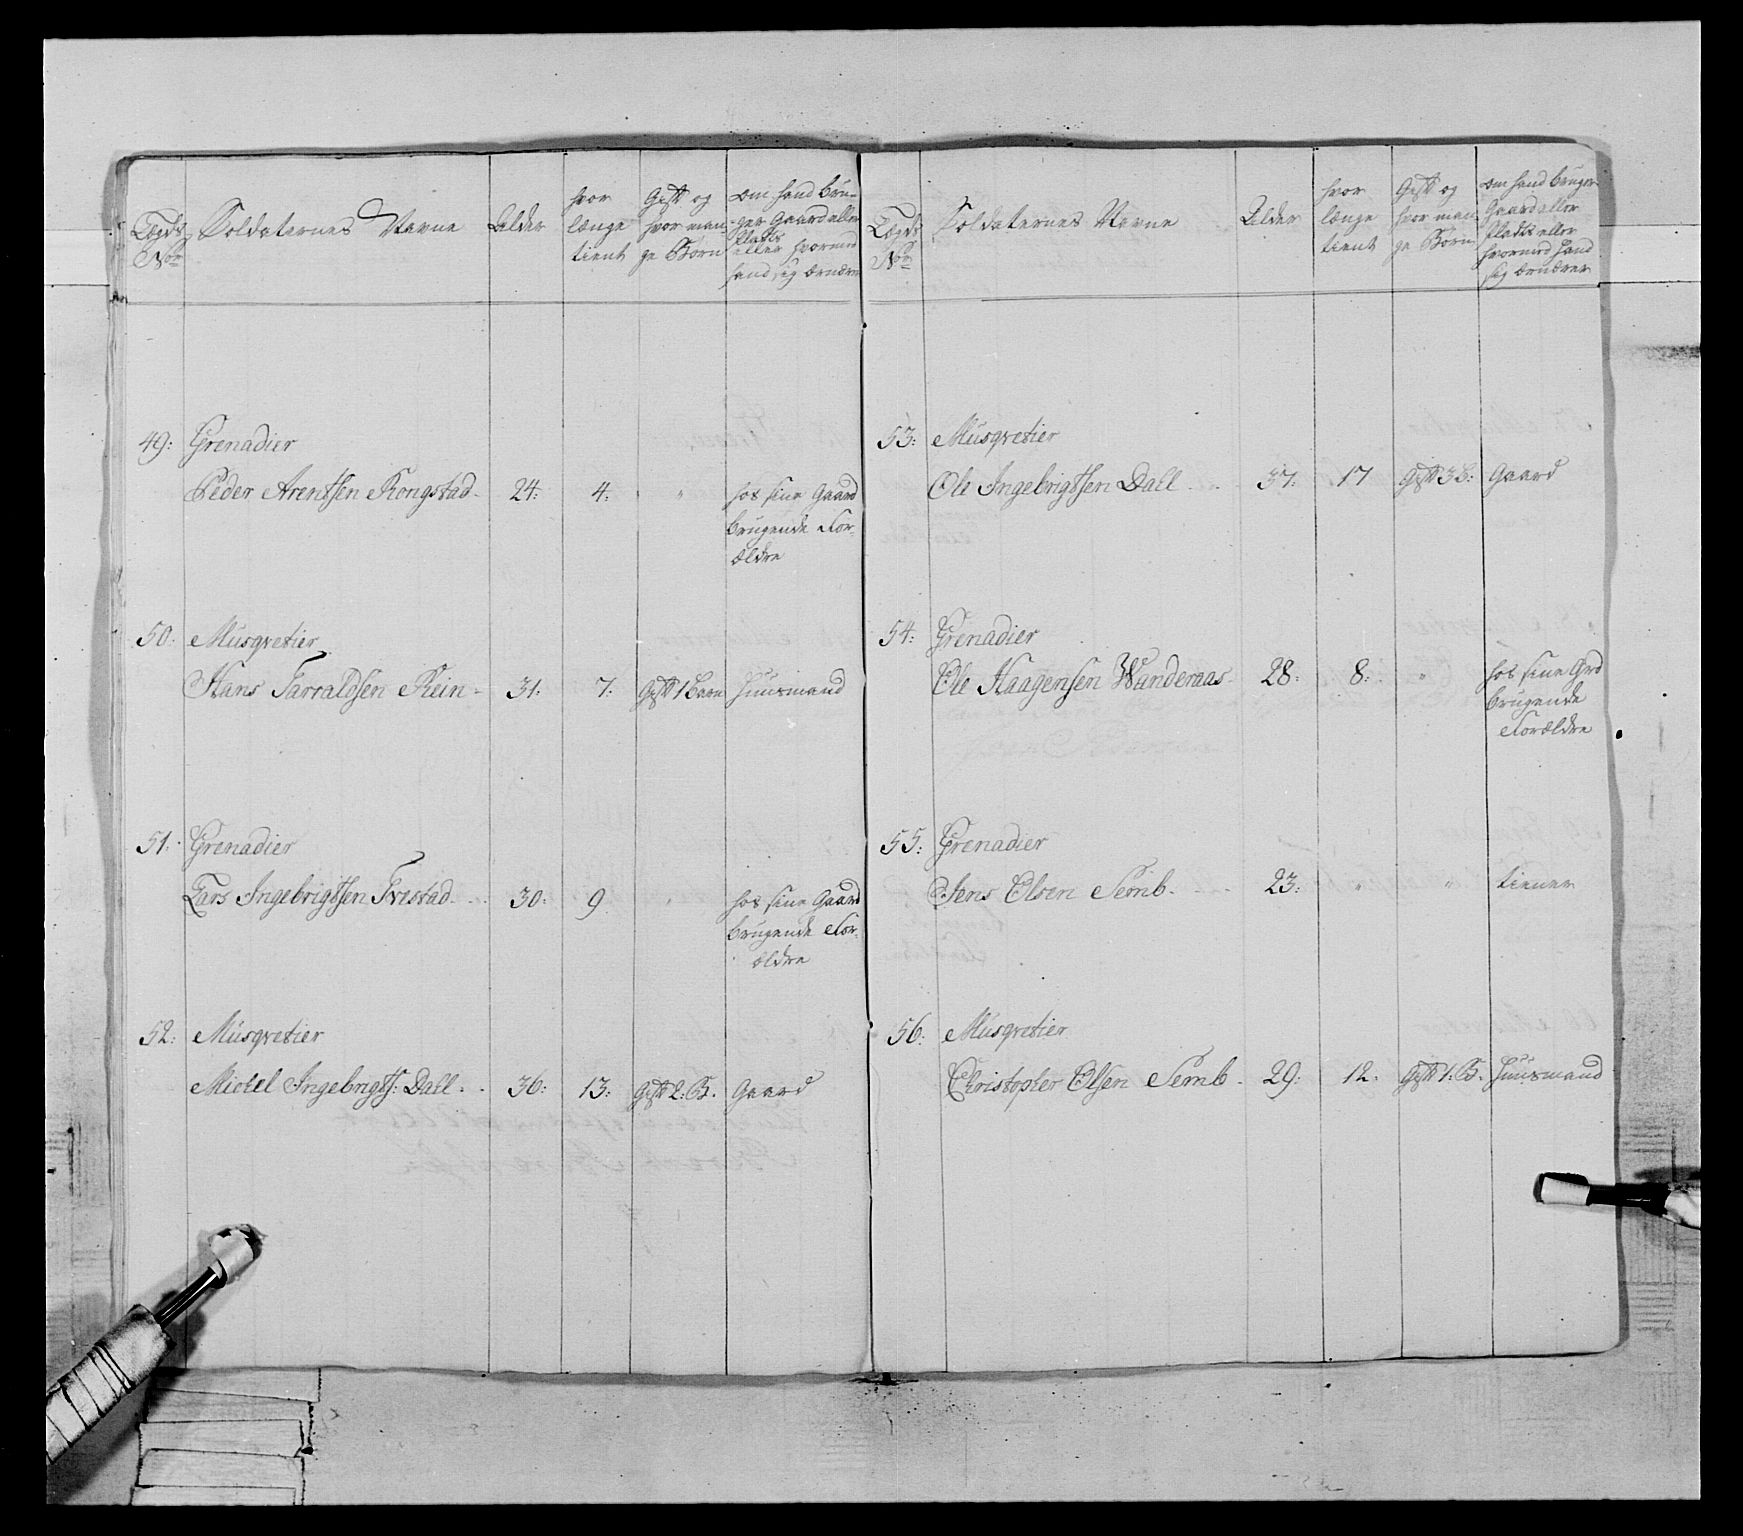 Lægds
No
Soldaternes Navne
Alder
hvor
længe
tient
Gift og
hvor man-
ge Børn
om hand bru-
ger Gaard eller
Plads
eller hvormed
hand sig ernærer
49: Grenadier
Peder Arentsen Rongstad 24: 4: " hos sine Gaard
brugende For-
ældre
50: Musqvetier
Hans Tarraldsen Rein 31: 7: Gift 1 Barn Huusmand
51: Grenadier
Lars Ingebrigtsen Trestad 30: 9 hos sine Gaard
brugende For-
ældre
52: Musqvetier
Michel Ingebrigts: Dall 36: 13: Gift 2: B. Gaard
Lægds
No
Soldaternes Navne
Alder
hvor
længe
tient
Gift og
hvor man-
ge Børn
om hand bruger
Gaard eller
Plads eller
hvormed hand
sig ernærer
53: Musqvetier
Ole Ingebrigtsen Dall 37: 17 Gift 3 B: Gaard
54: Grenadier
Ole Haagensen Wanderaas 28: 8: " hos sine Grd
brugende
Forældre
55: Grenadier
Jens Olsen Semb 23: " " tiener
56: Musqvetier
Christopher Olsen Semb 29: 12: Gift 1: B. Huusmand